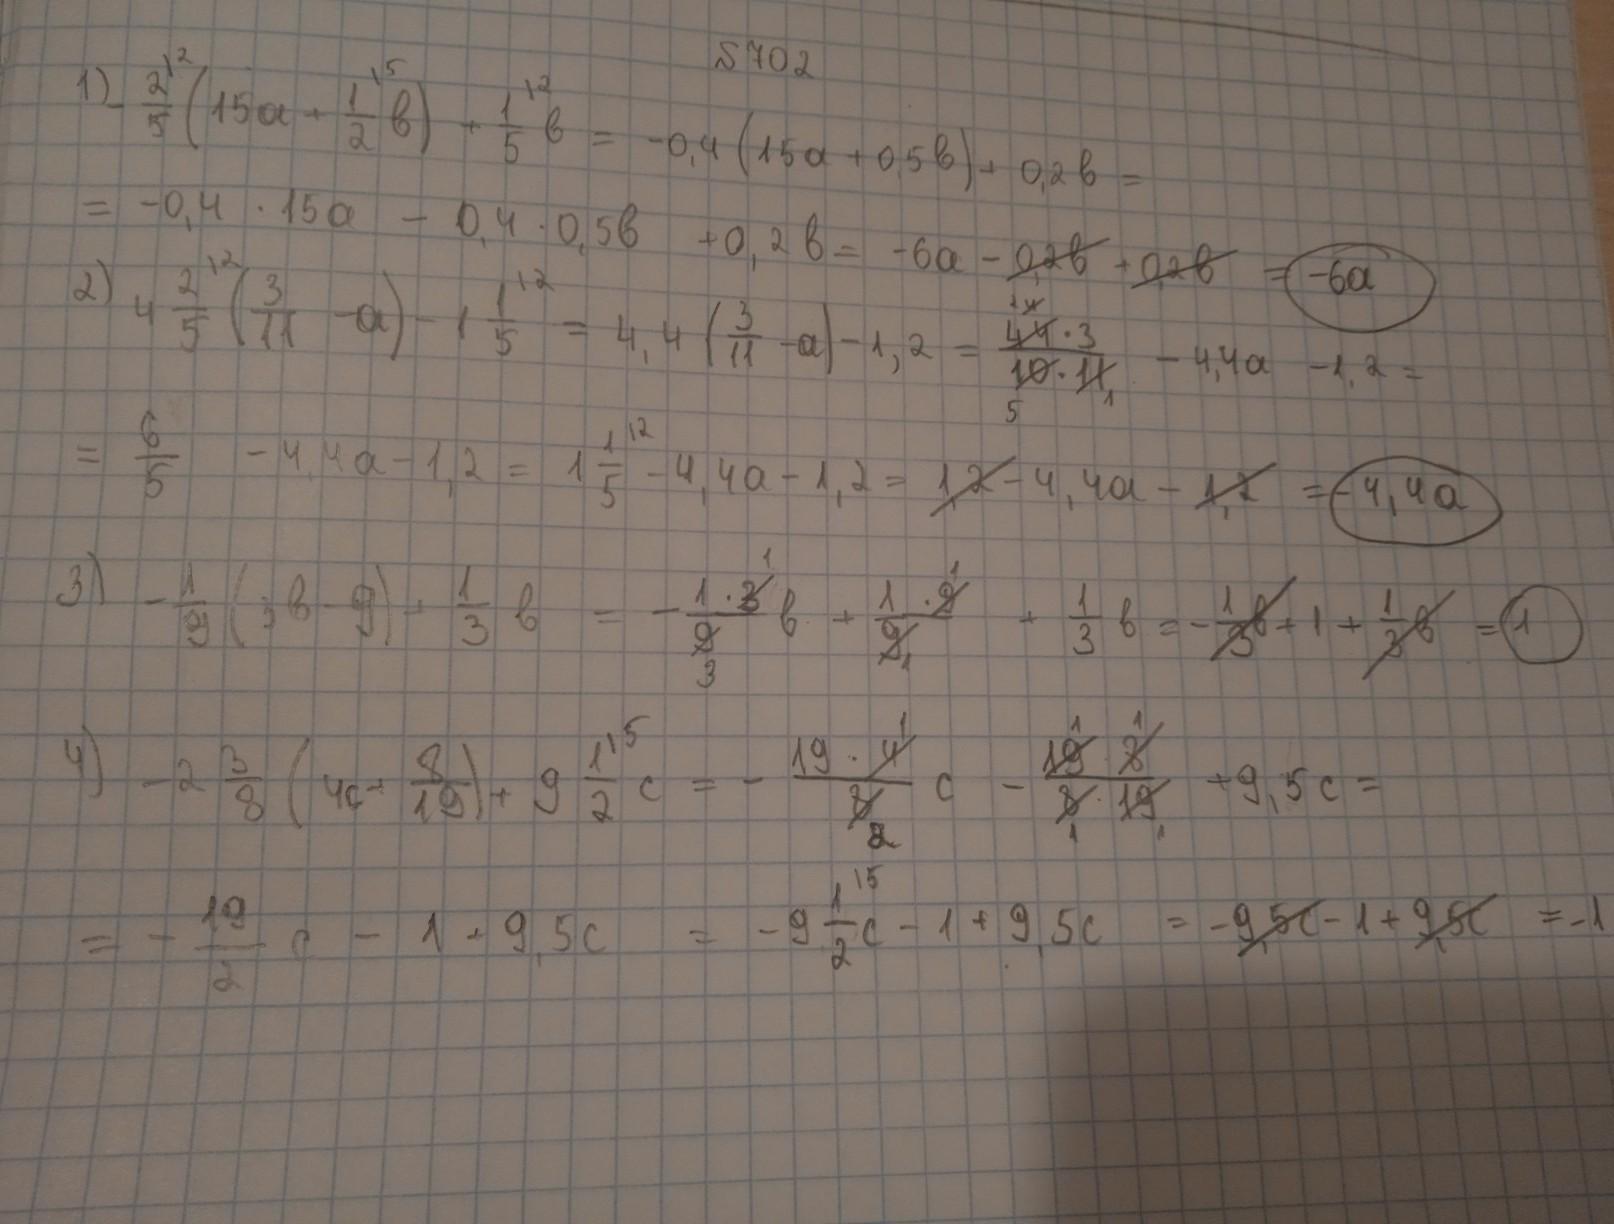 № 702
1) -2/5^{\2}(15a + 1/2^{\5}в) + 1/5^{\2}в = -0,4(15a + 0,5в) + 0,2в =
= -0,4 · 15a - 0,4 · 0,5в + 0,2в = -6a - 0,2в + 0,2в = -6a
2) 4 2/5^{\2}(3/11 - a) - 1 1/5^{\2} = 4,4(3/11 - a) - 1,2 = 44·3/10·11 - 4,4a - 1,2 =
= 6/5 - 4,4a - 1,2 = 1 1/5^{\2} - 4,4a - 1,2 = 1,2 - 4,4a - 1,2 = -4,4a
3) -1/9(3в - 9) + 1/3 в = -1·3/9 в + 1·9/9 + 1/3 в = -1/3в + 1 + 1/3в = 1
4) -2 3/8(4c + 8/19) + 9 1/2^{\5} c = -19·4/8 c - 19·8/8·19 + 9,5c =
= -19/2 c - 1 + 9,5c = -9 1/2^{\5}c - 1 + 9,5c = -9,5c - 1 + 9,5c = -1